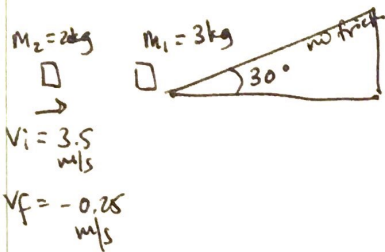 m₂ = 2kg m₁ = 3kg
no frict
30°
Vi = 3.5
m/s
Vf = -0.25
m/s